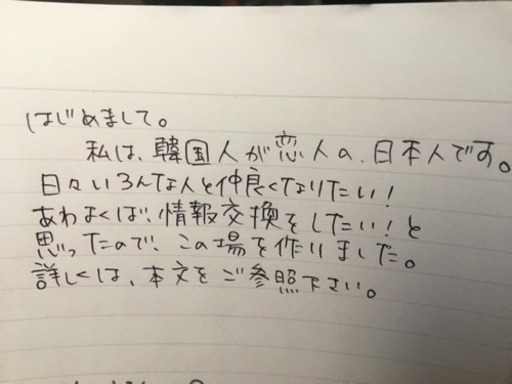 はじめまして。
私は、韓国人が恋人の、日本人です。
日々いろんな人と仲良くなりたい!
あわよくば、情報交換をしたい!と
思ったので、この場を作りました。
詳しくは、本文をご参照下さい。